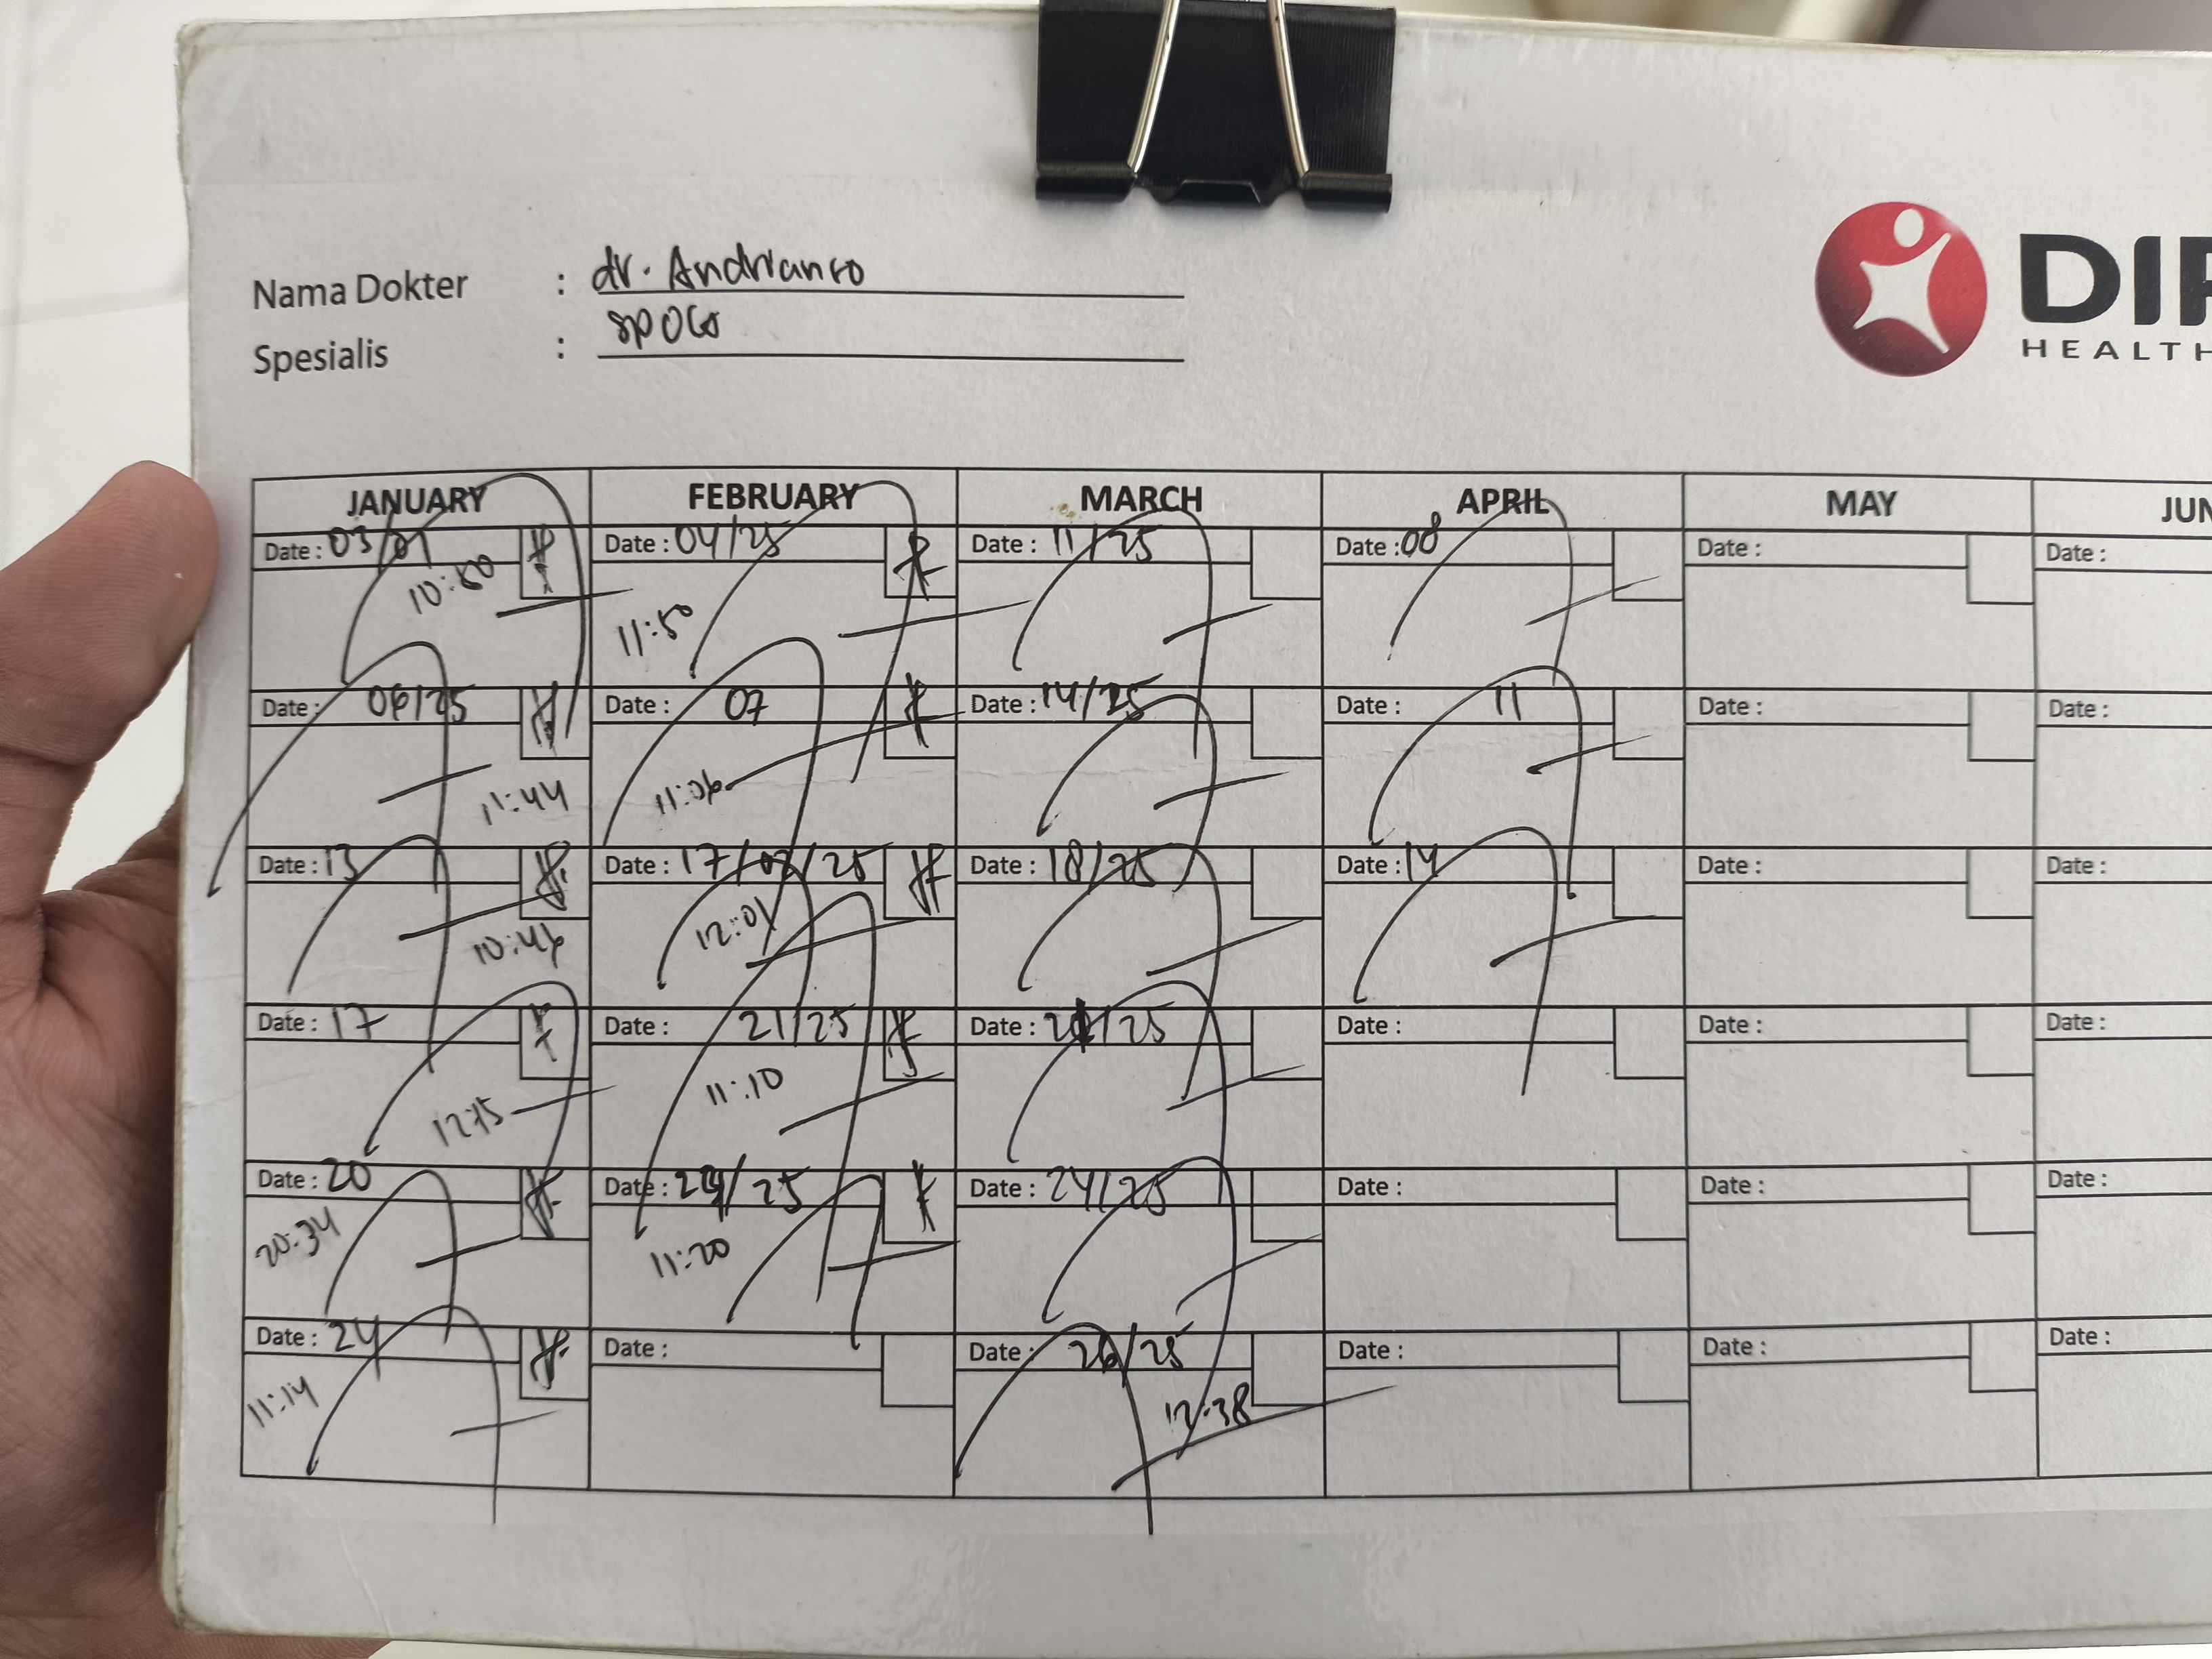 Nama Dokter : dr. Andrianto
Spesialis : SPOG
DI
HEALTH
JANUARY FEBRUARY MARCH APRIL MAY JUN
Date : 03/01 Date : 04/25 Date : 11/25 Date : 08 Date : Date :
10:50 11:50
Date : 06/25 Date : 07 Date : 14/25 Date : 11 Date : Date :
11:44 11:06
Date : 13 Date : 17/02/25 Date : 18/25 Date : 14 Date : Date :
10:46 12:01
Date : 17 Date : 21/25 Date : /25 Date : Date : Date :
12:15 11:10
Date : 20 Date : /25 Date : 24/25 Date : Date : Date :
20:34 11:20
Date : 24 Date : Date : 26/25 Date : Date : Date :
11:14 12:38